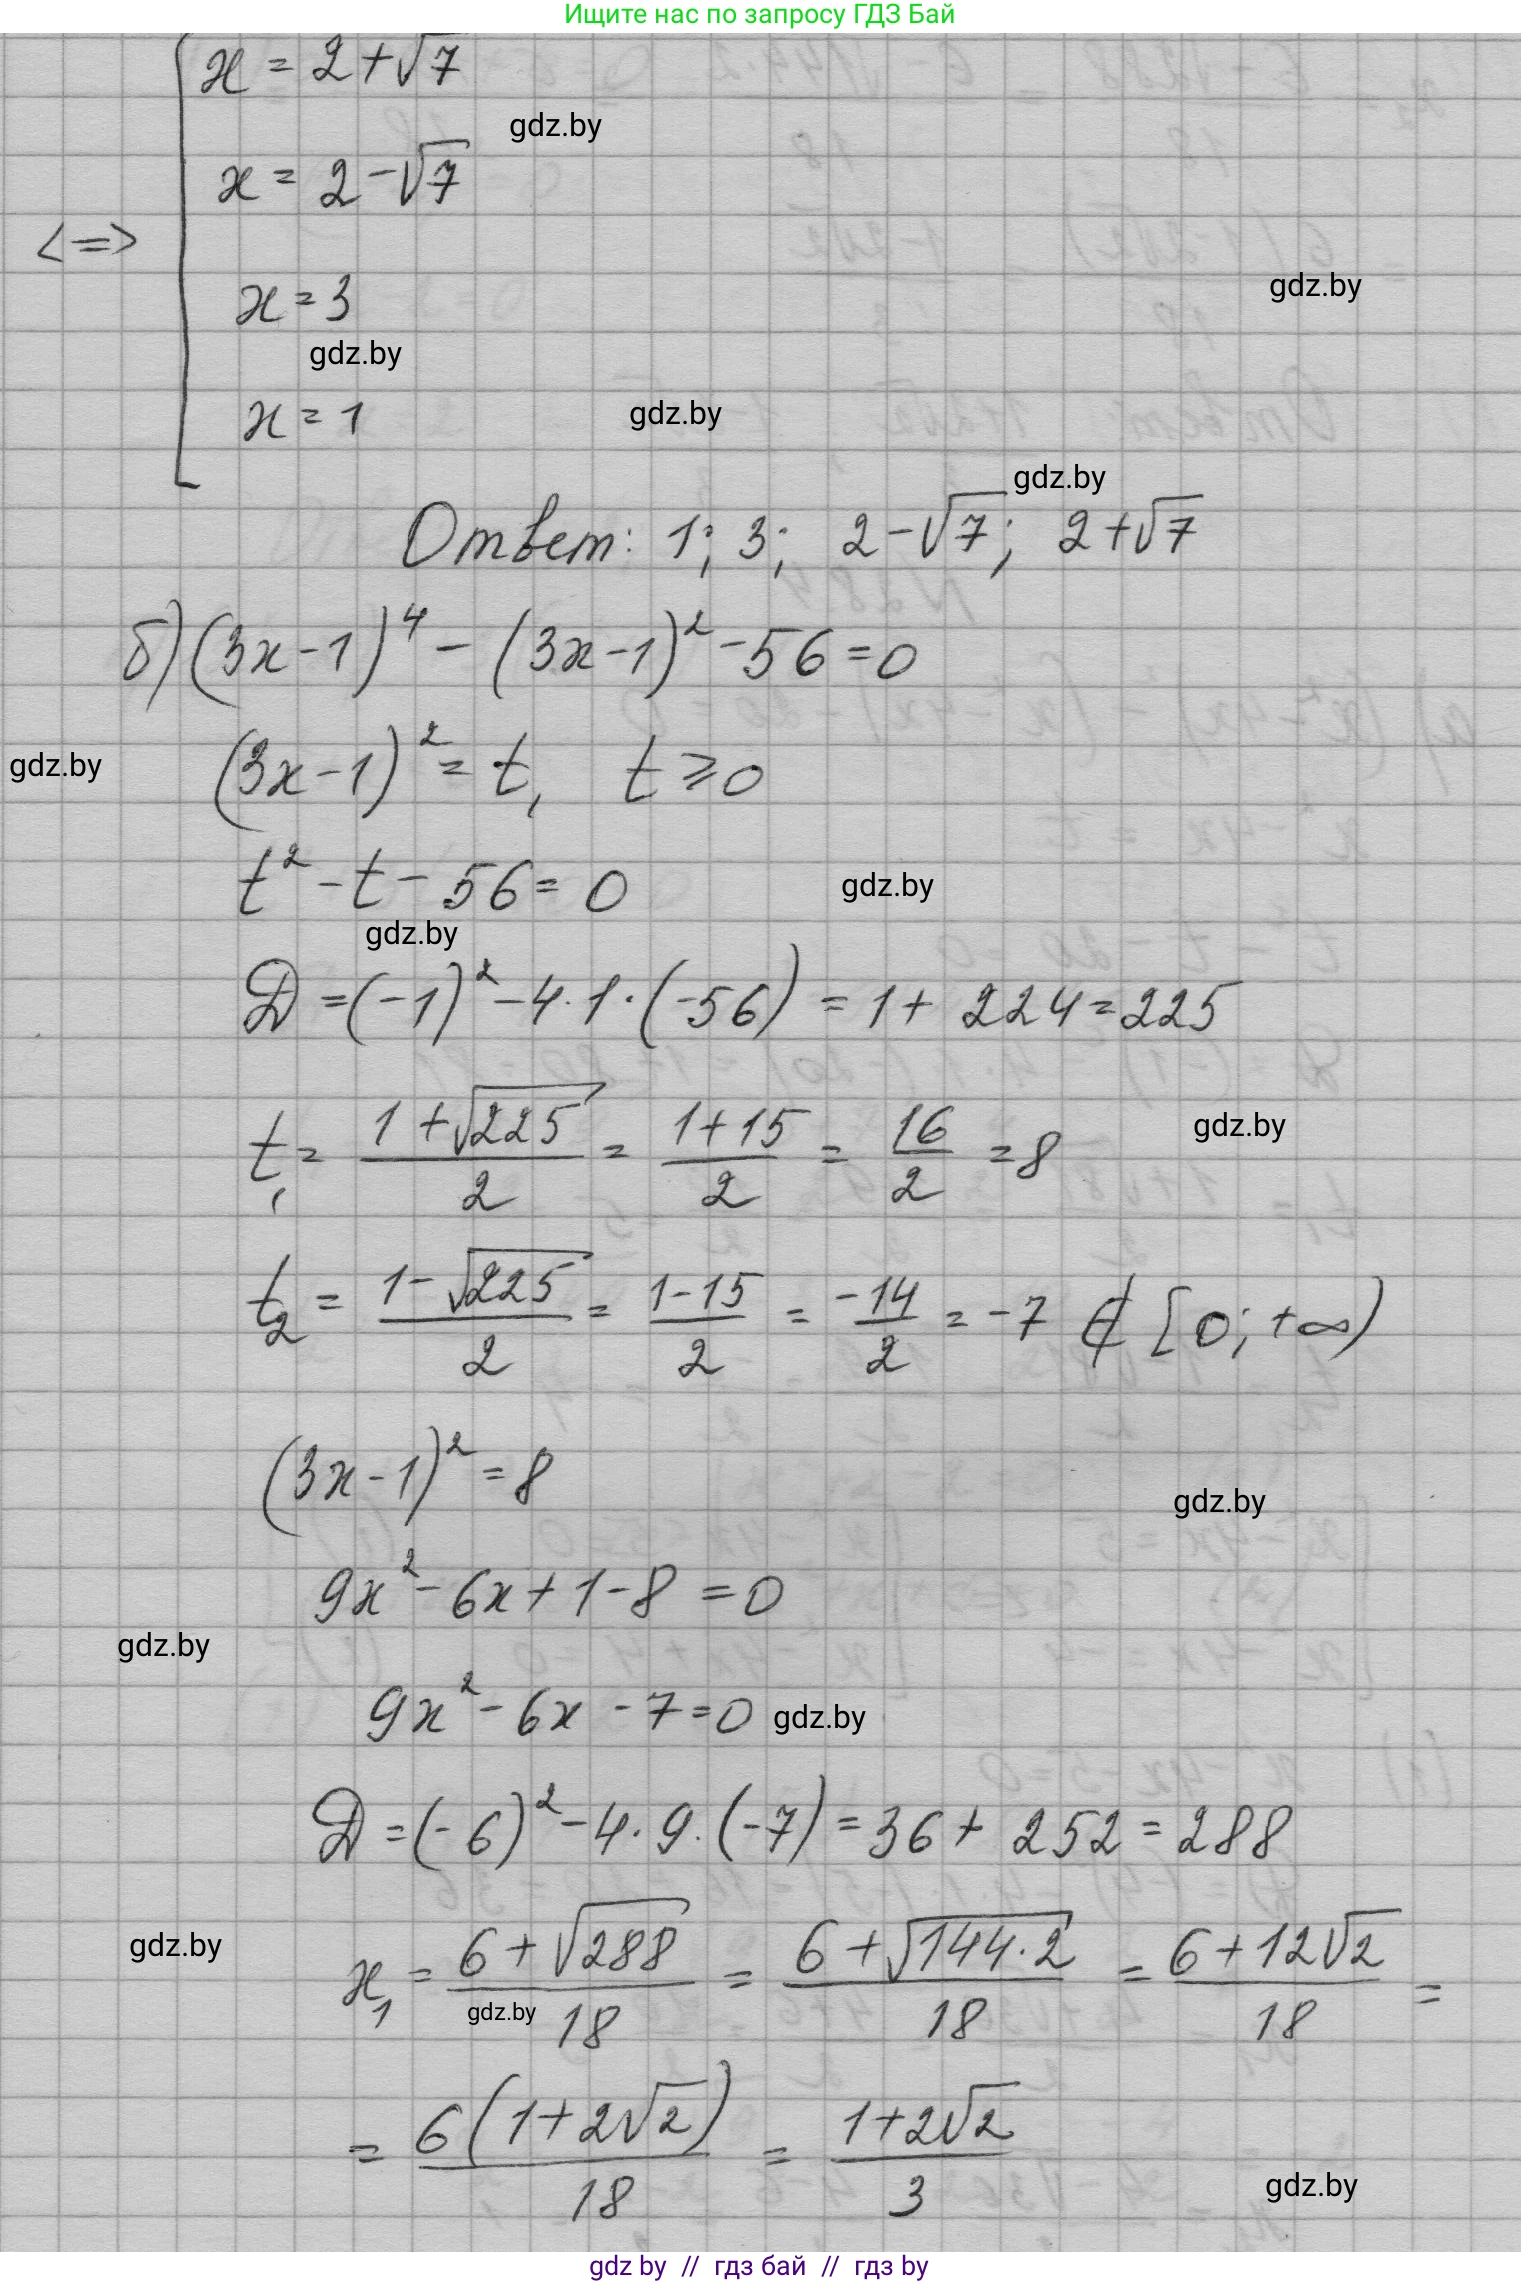 Ищите нас по запросу ГДЗ Бай
x = 2 + √7
gdz.by
x = 2 - √7
<=>
gdz.by
x = 3
gdz.by
x = 1
gdz.by
gdz.by
Ответ: 1; 3; 2 - √7; 2 + √7
б) (3x - 1)⁴ - (3x - 1)² - 56 = 0
(3x - 1)² = t, t ⩾ 0
gdz.by
t² - t - 56 = 0
gdz.by
gdz.by
D = (-1)² - 4 · 1 · (-56) = 1 + 224 = 225
t₁ = (1 + √225)/2 = (1 + 15)/2 = 16/2 = 8
gdz.by
t₂ = (1 - √225)/2 = (1 - 15)/2 = -14/2 = -7 ∉ [0; +∞)
(3x - 1)² = 8
gdz.by
9x² - 6x + 1 - 8 = 0
gdz.by
9x² - 6x - 7 = 0
gdz.by
D = (-6)² - 4 · 9 · (-7) = 36 + 252 = 288
gdz.by
x₁ = (6 + √288)/18 = (6 + √144·2)/18 = (6 + 12√2)/18 =
gdz.by
= 6(1 + 2√2)/18 = (1 + 2√2)/3
gdz.by
gdz by // гдз бай // гдз by